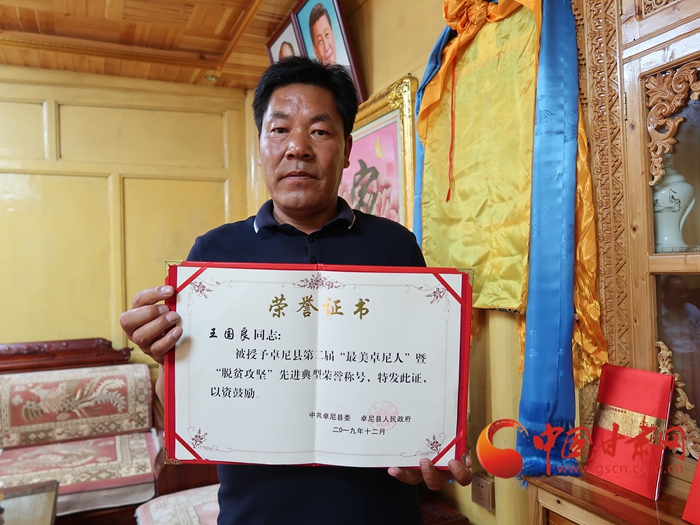 荣誉证书
王国良同志：
被授予卓尼县第二届“最美卓尼人”暨
“脱贫攻坚”先进典型荣誉称号，特发此证，
以资鼓励。
中共卓尼县委 卓尼县人民政府
二〇一九年十二月
家
中国甘肃网
www.gscn.com.cn